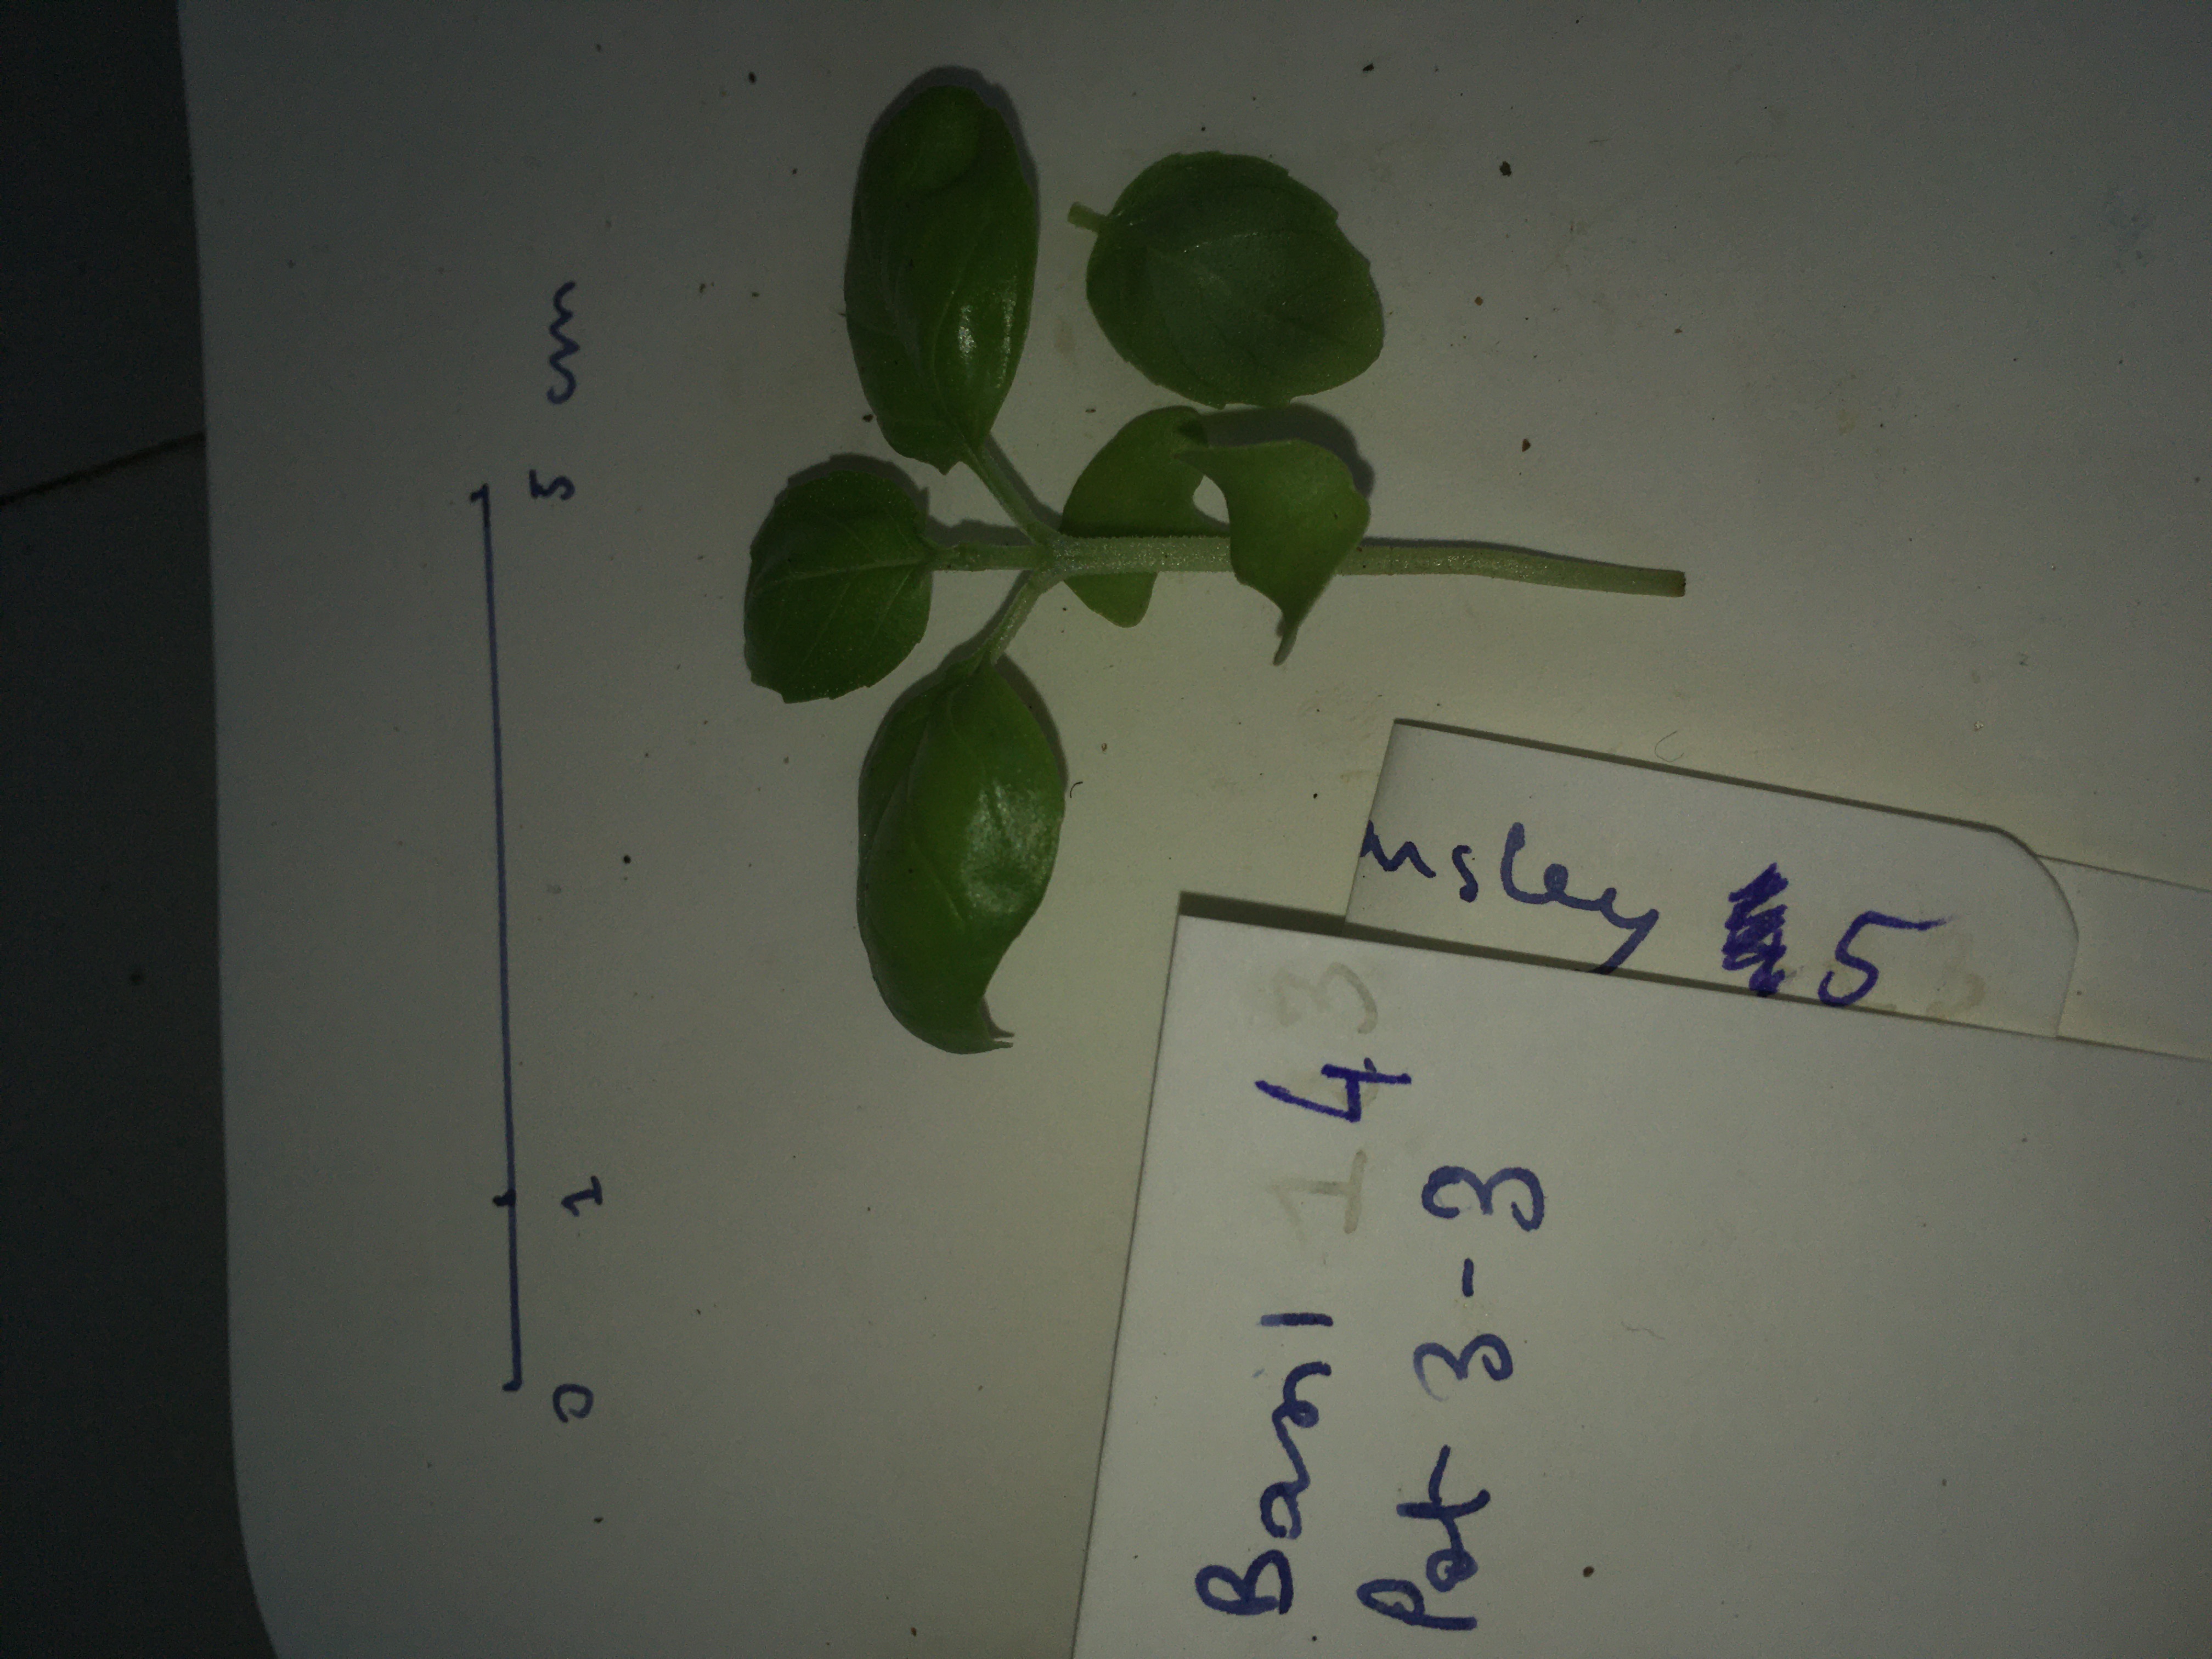 0 1 5 cm
Basil 4
Pot 3-3
nsley 5